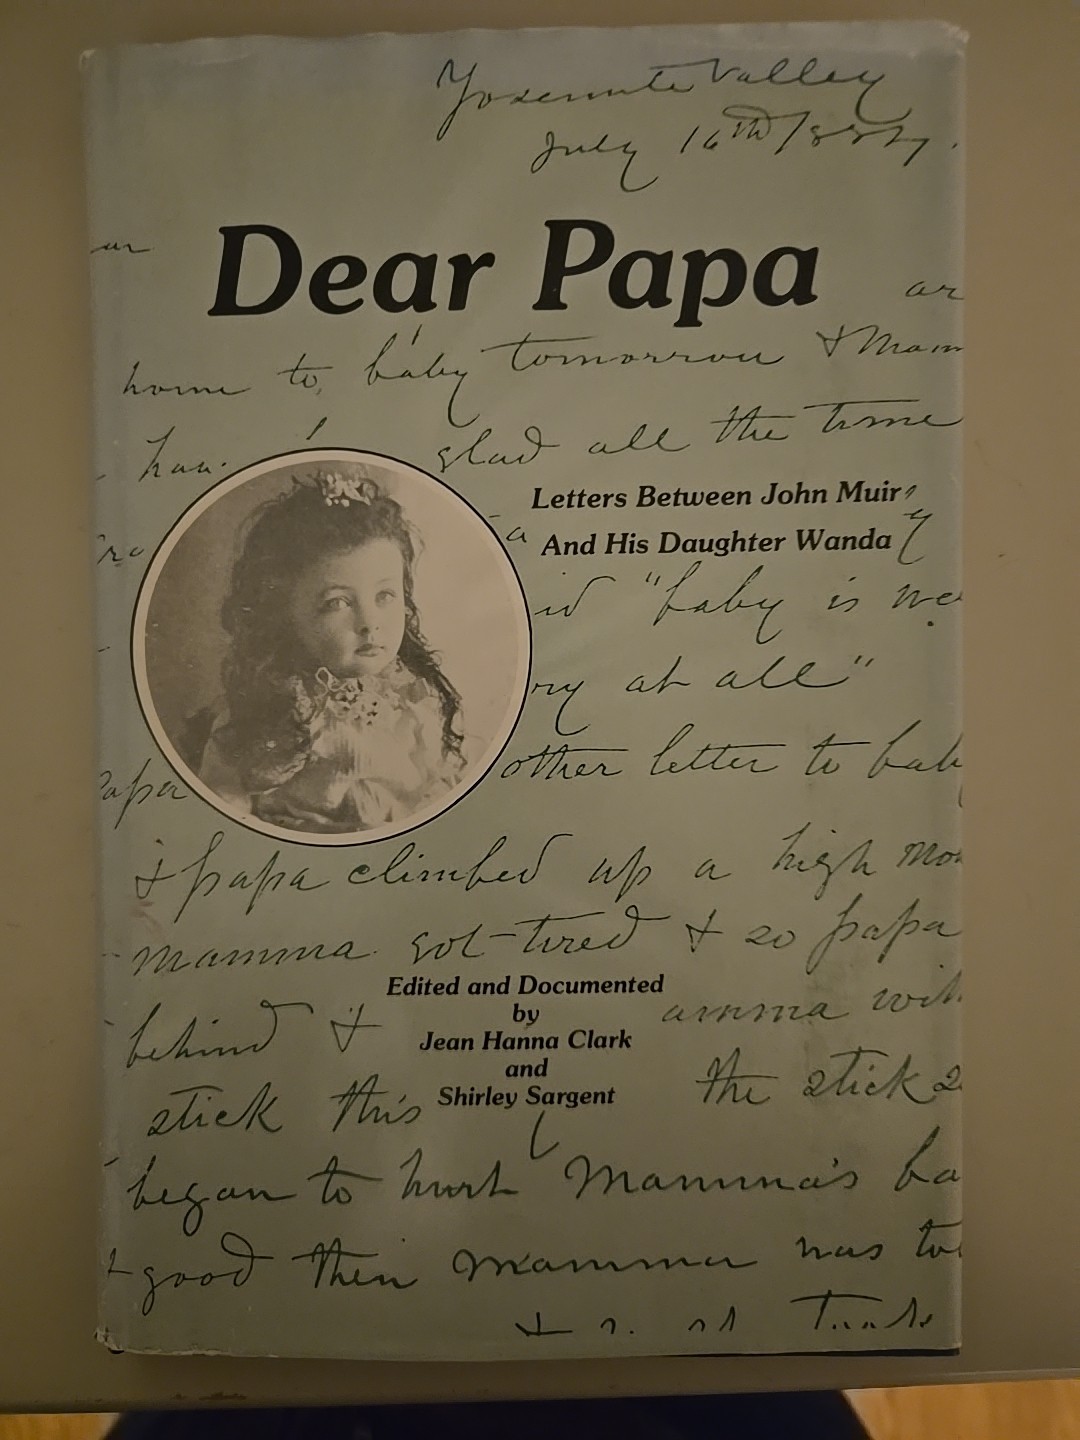 Yosemite Valley
July 16th 1884.
Dear Papa
ar
home to baby tomorrow & Mam
glad all the time
Letters Between John Muir
And His Daughter Wanda
a
"baby is we
ry at all"
Papa
other letter to bab
& papa climbed up a high mo
mamma got tired & so papa
Edited and Documented
by
Jean Hanna Clark
and
Shirley Sargent
behind & amma with
stick this the stick s
began to hurt Mamma's ba
good then Mamma was to